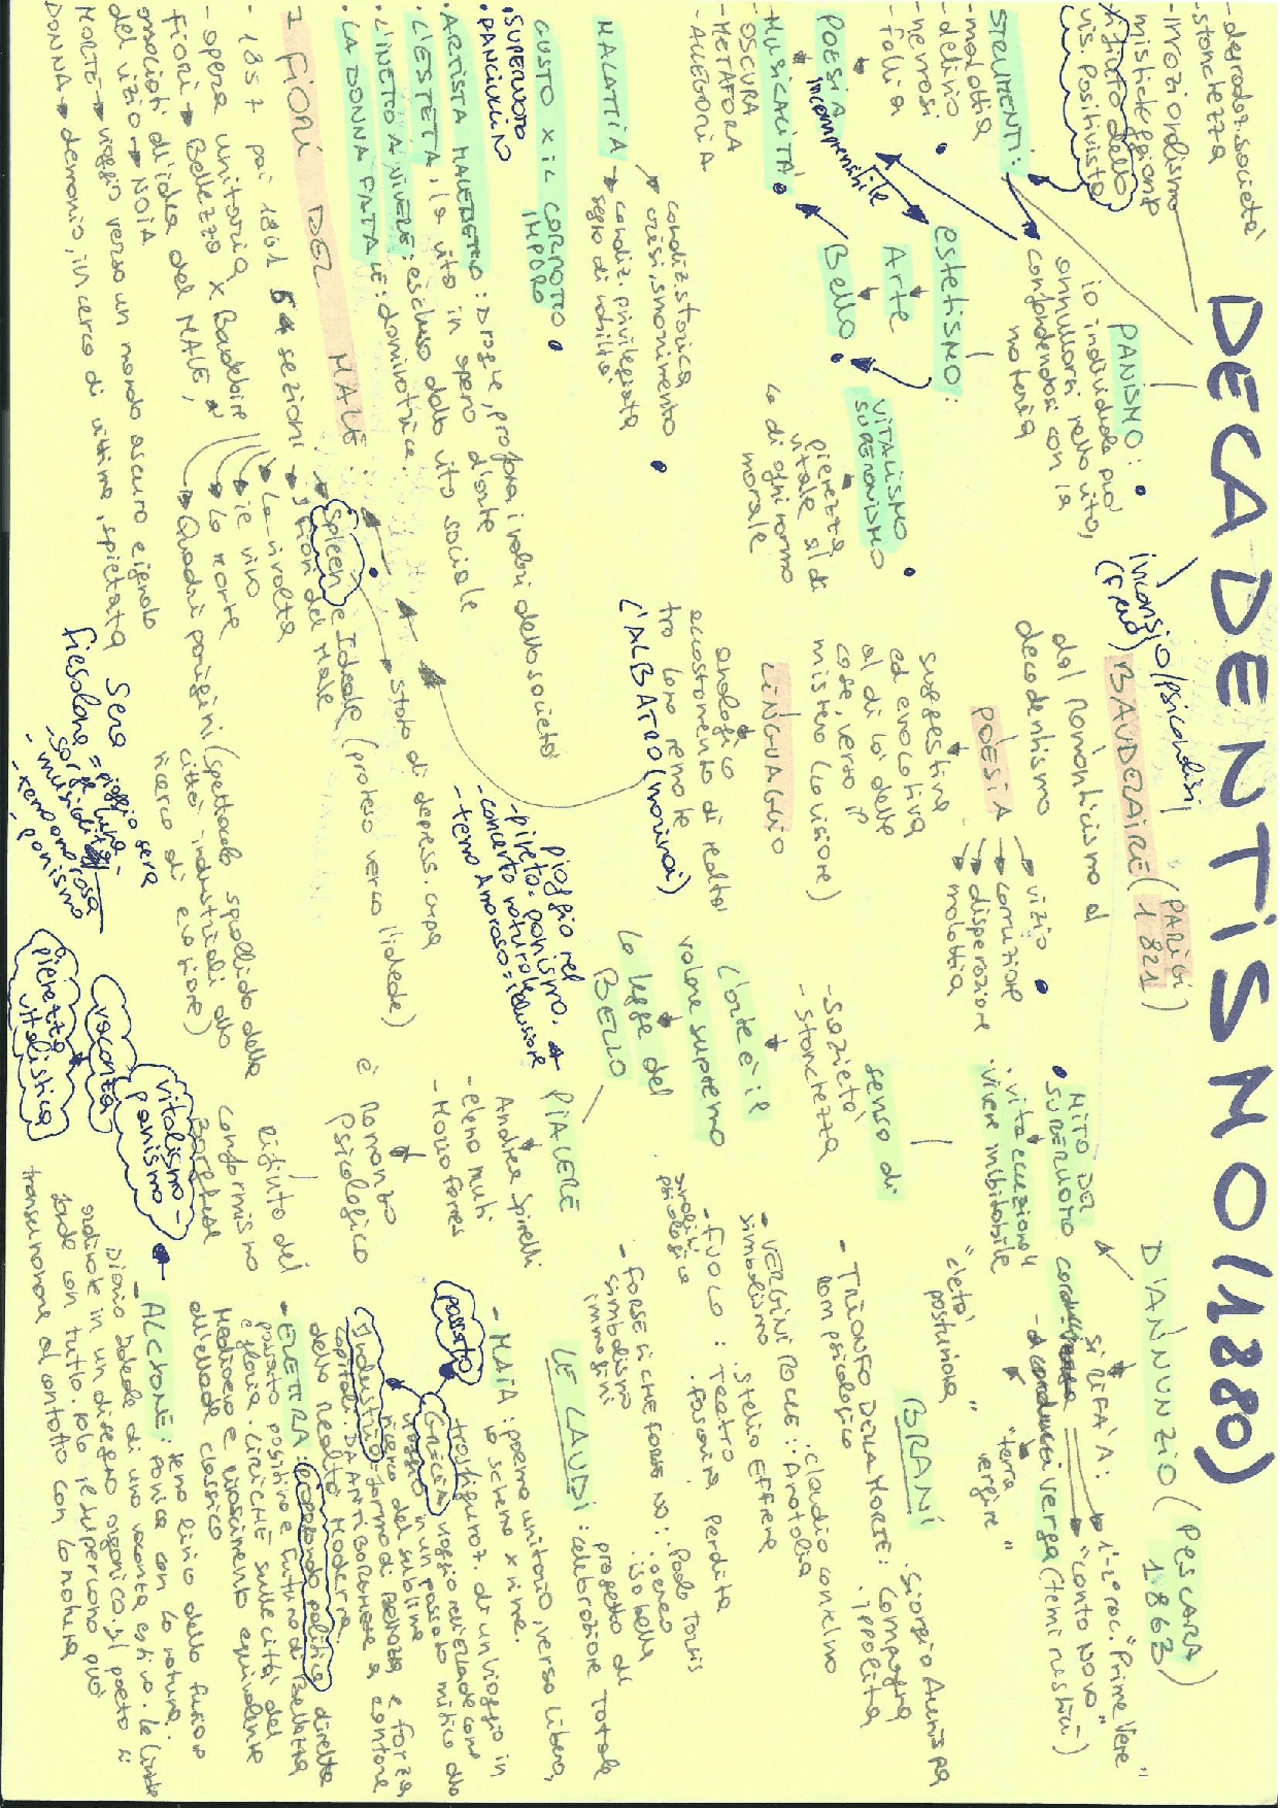 DECADENTISMO (1880)
- degradaz. società
- stanchezza
- irrazionalismo
misticheggiante
x rifiuto della
vis. Positivista
STRUMENTI:
- malattia
- delirio
- nevrosi
- follia
POESIA
incomprensibile
MUSICALITÀ
- OSCURA
- METAFORA
- ALLEGORIA
PANISMO:
io individuale può
annullarsi nella vita,
confondendosi con la
materia
inconscio/psicanalisi
(Freud)
ESTETISMO:
Arte
Bello
VITALISMO
SUPEROMISMO
pienezza
vitale al di
là di ogni norma
morale
MALATTIA
condiz. storica
crisi, smarrimento
condiz. privilegiata
segno di nobiltà
GUSTO X IL CORROTTO
IMPURO
• SUPERUOMO
• FANCIULLINO
• ARTISTA MALEDETTO: Droghe, profana i valori della società
• L'ESTETA: la vita in opera d'arte
• L'INETTO A VIVERE: escluso dalla vita sociale
• LA DONNA FATALE: dominatrice.
BAUDELAIRE (PARIGI
1821)
dal Romanticismo al
decadentismo
POESIA
vizio
corruzione
disperazione
malattia
suggestiva
ed evocativa
al di là delle
cose, verso il
mistero (la visione)
LINGUAGGIO
analogico
accostamento di realtà
tra loro remote
L'ALBATRO (marinai)
I FIORI DEL MALE:
- 1857 poi 1861 6 sezioni
Spleen e Ideale (proteso verso l'ideale)
stato di depress. cupa
I Fiori del Male
La rivolta
Il vino
La morte
Quadri parigini (spettacolo squallido della
città industriale alla
ricerca di evasione)
- opera unitaria
fiori → Bellezza x Baudelaire
associati all'idea del MALE,
del vizio → NOIA
MORTE → viaggio verso un mondo oscuro e ignoto
DONNA → demonio, in cerca di vittime, spietata
senso di
- Sazietà
- Stanchezza
L'arte è il
valore supremo
La legge del
BELLO
PIACERE
Andrea Sperelli
- Elena Muti
- Maria Ferres
Romanzo
Psicologico
è
rifiuto del
conformismo
Borghese
pioggia nel
pineto: panismo.
- concerto naturale
- tema Amoroso: illusione
Sera
fiesolana =
pioggia sera
- musicalità
- panismo
vitalismo -
panismo
vacanza
pienezza
vitalistica
D'ANNUNZIO (PESCARA
1863)
si rifà a:
1ª-2ª rac. "Prime Vere"
"Canto Novo"
Verga (temi rustici)
"terra
vergine"
MITO DEL
SUPERUOMO
• vita eccezionale
• vivere inimitabile
BRANI
- TRIONFO DELLA MORTE:
rom psicologico
. Giorgio Aurispa
. ippolita
- VERGINI ROCCE:
simbolismo
. Claudio Cantelmo
. Anatolia
- FUOCO:
. Stelio Effrena
. Foscarina perdita
. Teatro
- FORSE SI CHE FORSE NO:
simbolismo
immagini
. Paolo Tarsis
. aereo
. isabella
LE LAUDI:
progetto di
celebrazione Totale
- MAIA: poema unitario, verso libero,
no schema x rime.
trasfiguraz. di un viaggio in
Grecia viaggio nell'Ellade come
viaggio in un passato mitico alla
ricerca del sublime
passato
Industria = forma di Bellezza e forza
capitali. DA ANTI BORGHESE a cantore
della realtà Moderna.
- ELETTRA: propaganda politica diretta
passato positivo e futuro di Bellezza
e gloria. LIRICHE sulle città del
Medioevo e rinascimento equivalente
dell'ellade classico
- ALCYONE: tema lirico della fusione
panica con la natura.
Diario Ideale di una vacanza estiva. Le liriche
ordinate in un disegno organico. Il poeta si
fonde con tutto. solo il superuomo può
transumanare al contatto con la natura